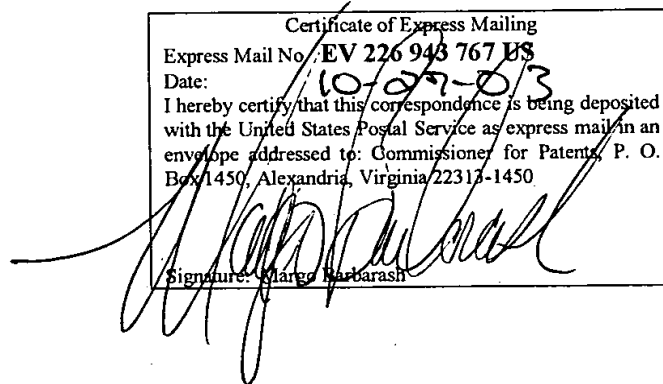 Certificate of Express Mailing
Express Mail No.: EV 226 943 767 US
Date: 10-27-03
I hereby certify that this correspondence is being deposited
with the United States Postal Service as express mail in an
envelope addressed to: Commissioner for Patents, P. O.
Box 1450, Alexandria, Virginia 22313-1450
Signature: Margo Barbarash